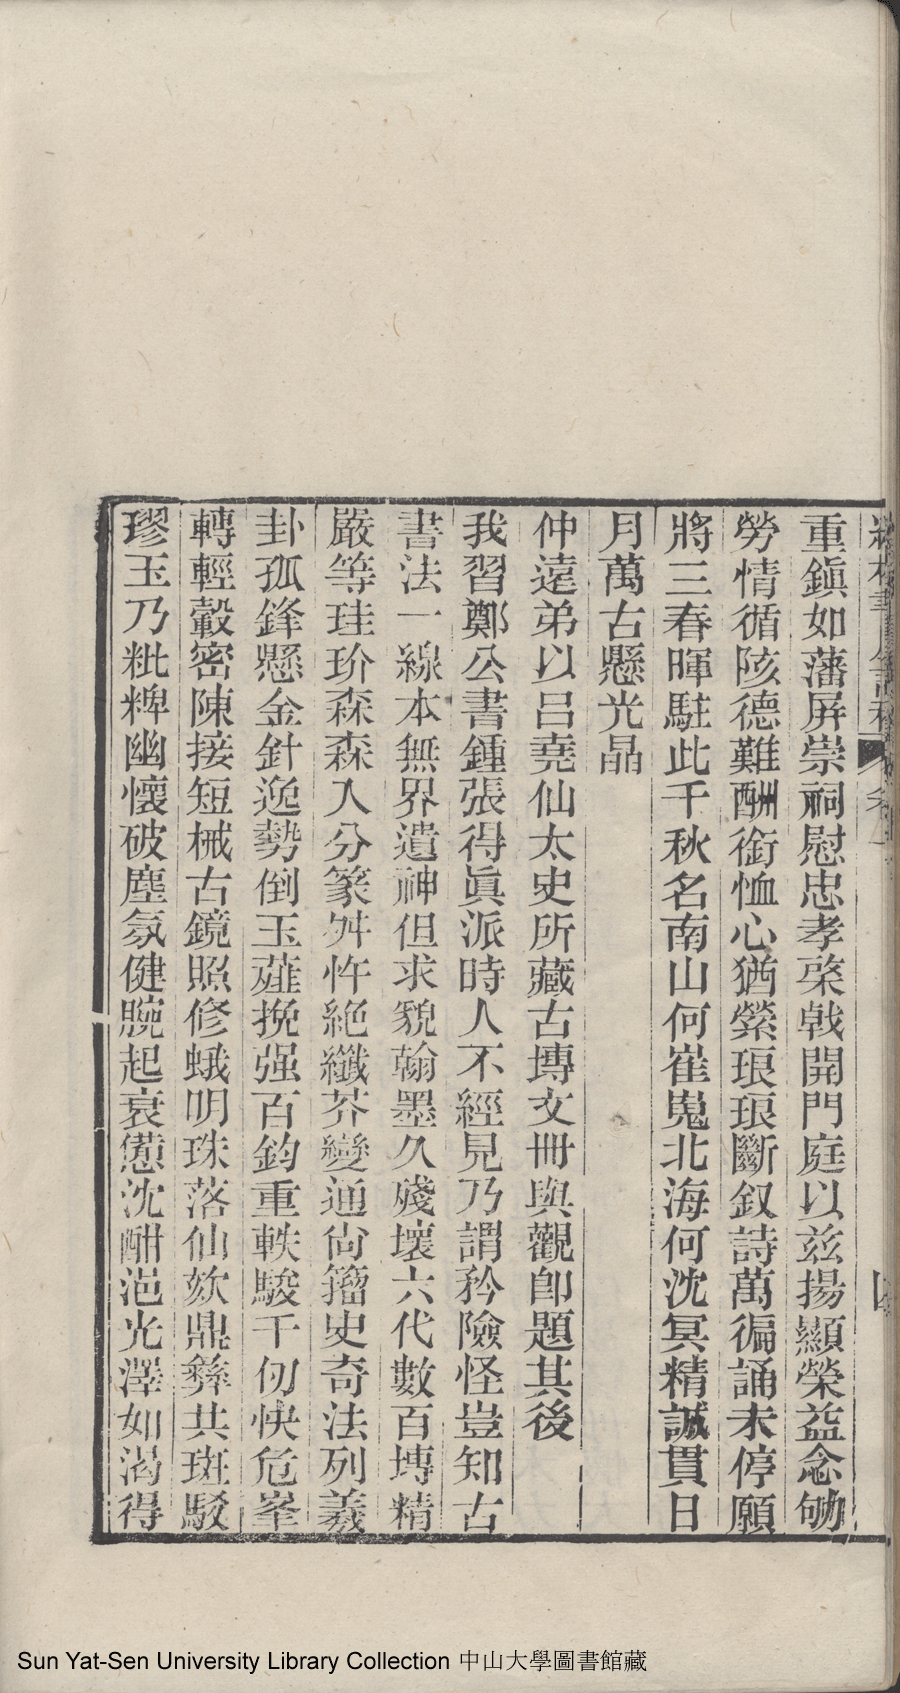 重鎭如藩屏崇祠慰忠孝棨戟開門庭以兹揚顯榮益念劬
勞情循陔德難酬銜恤心猶縈琅琅斷釵詩萬徧誦未停願
將三春暉駐此千秋名南山何崔嵬北海何沈冥精誠貫日
月萬古懸光晶
仲遠弟以呂堯仙太史所藏古塼文冊與觀卽題其後
我習鄭公書鍾張得眞派時人不經見乃謂矜險怪豈知古
書法一線本無界遺神但求貌翰墨久殘壞六代數百塼精
嚴等珪玠森森入分篆舛忤絕纖芥變通尙籀史奇法列羲
卦孤鋒懸金針逸勢倒玉薤挽强百鈞重軼駿千仞快危峯
轉輕轂密陳接短械古鏡照修蛾明珠落仙欬鼎彝共斑駁
璆玉乃粃粺幽懷破塵氛健腕起衰憊沈酣浥光澤如渴得
四
Sun Yat-Sen University Library Collection 中山大學圖書館藏